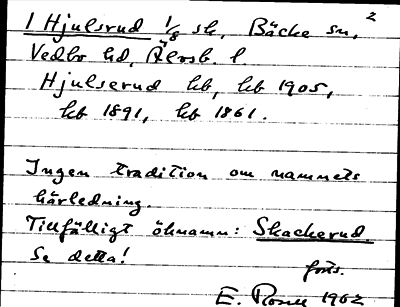 2
1 Hjulsrud 1/8 sk, Bäcke sn,
Vedbo hd, Älvsb. l.
Hjulserud hb, hb 1905,
hb 1891, hb 1861.
Ingen tradition om namnets
härledning.
Tillfälligt öknamn: Skackerud
Se detta!
forts.
E. 1962